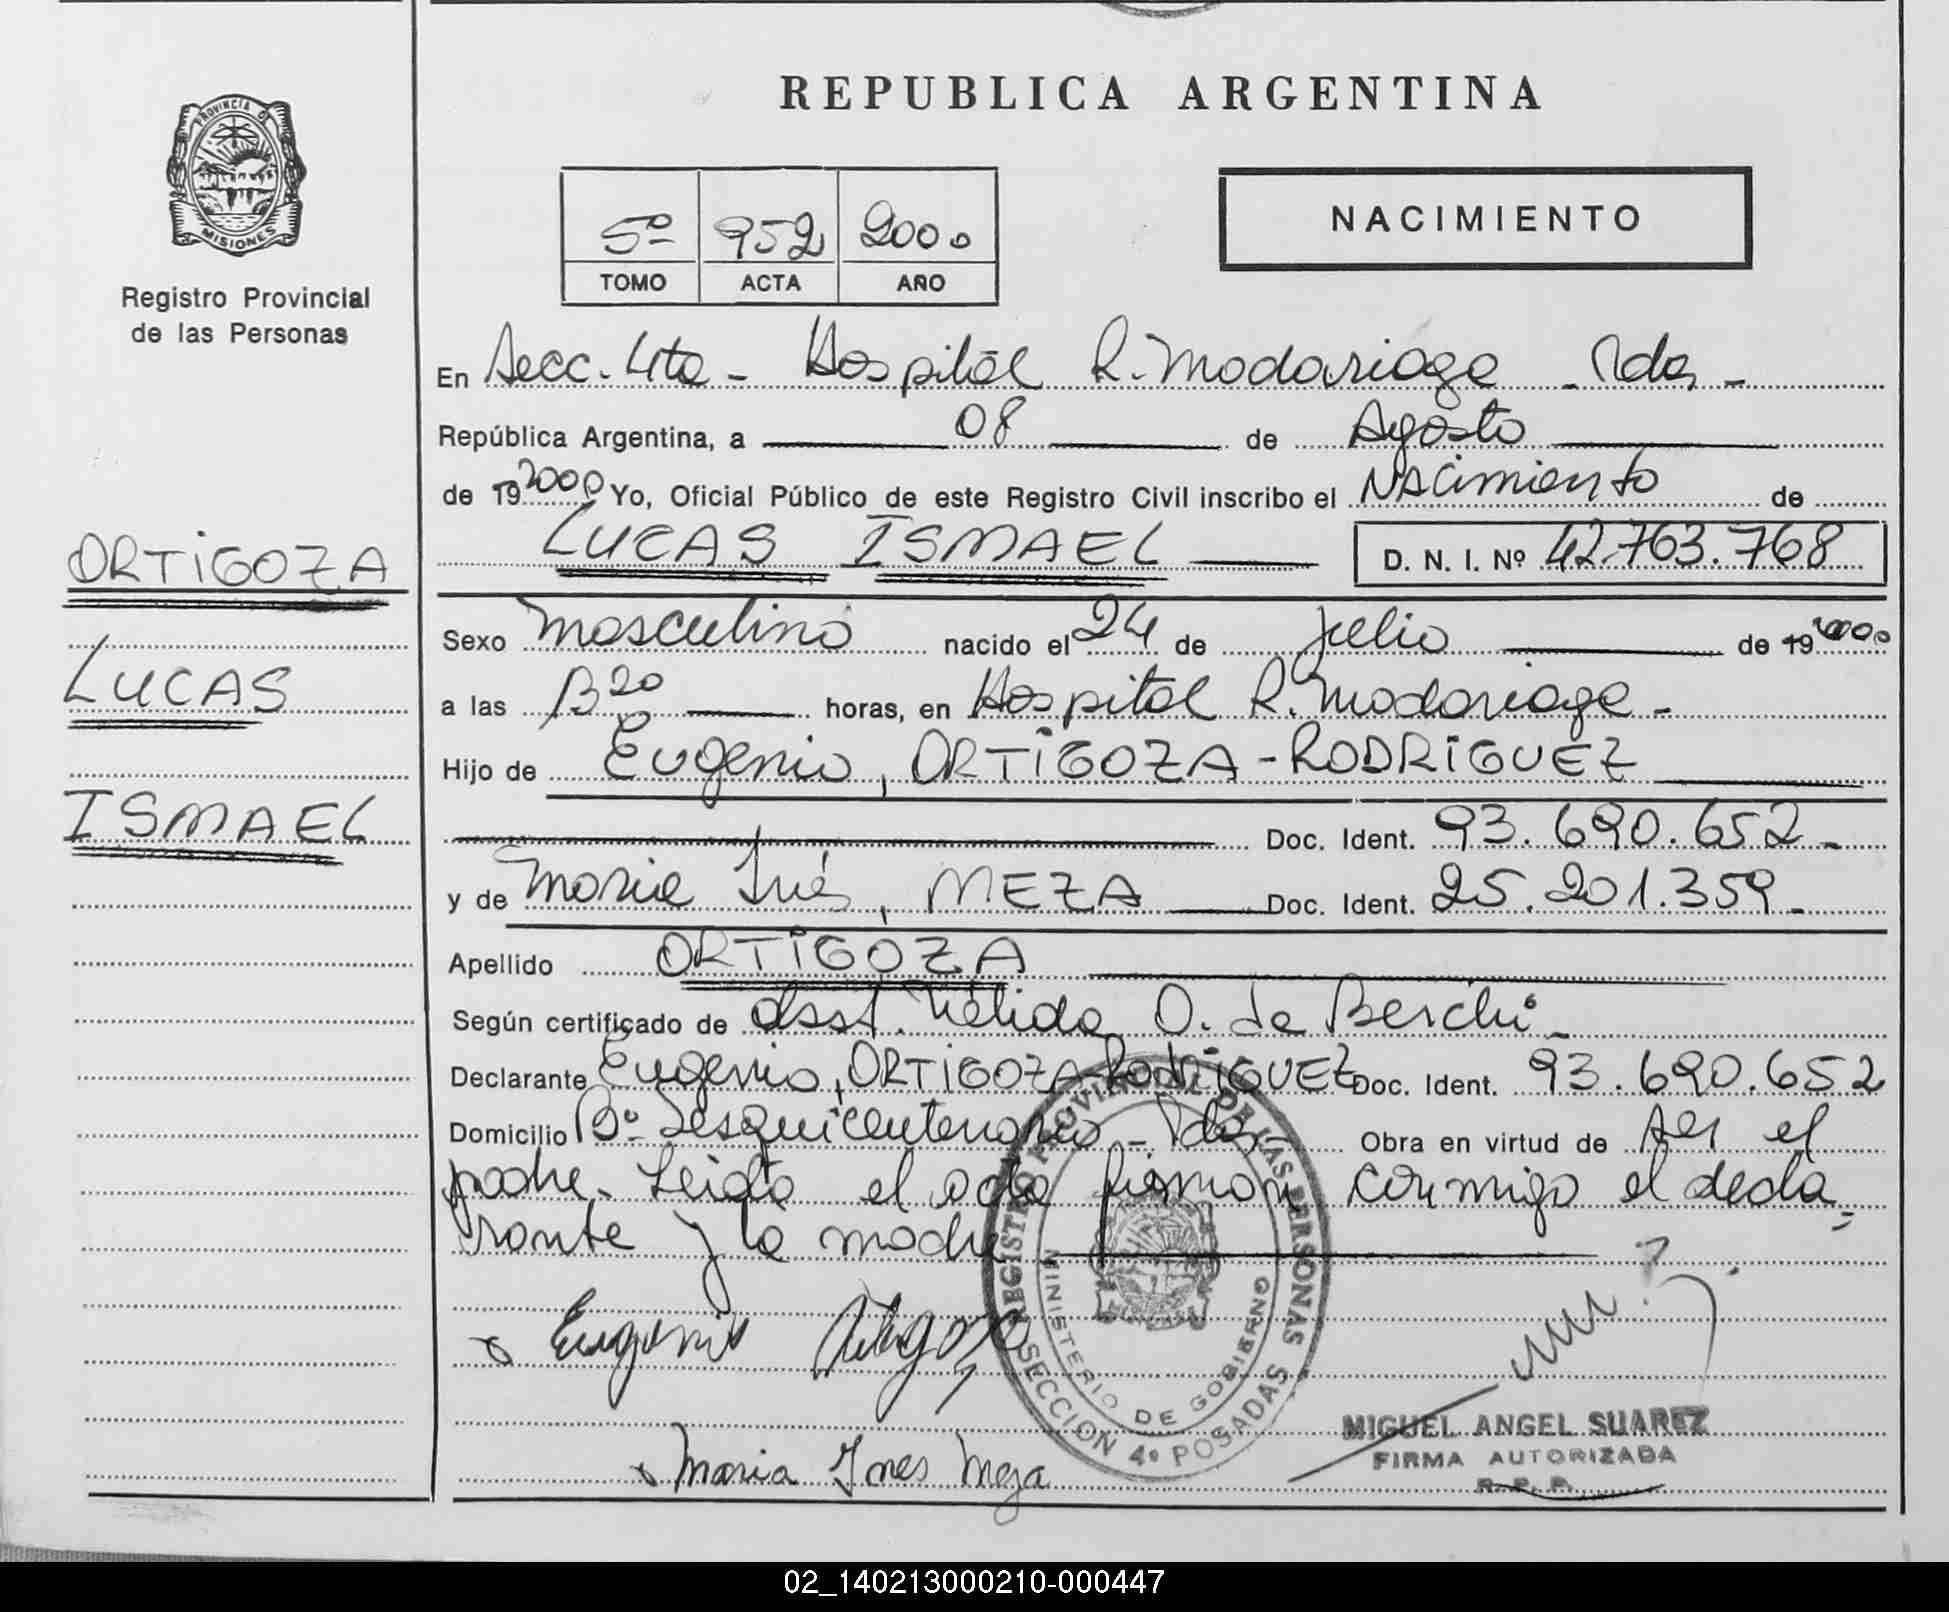 REPUBLICA ARGENTINA
PROVINCIA DE
MISIONES
Registro Provincial
de las Personas
5º 952 2000
TOMO ACTA AÑO
NACIMIENTO
En Secc. 4ta - Hospital R. Madariaga - Pdas -
República Argentina, a 08 de Agosto
de 19 2000 Yo, Oficial Público de este Registro Civil inscribo el Nacimiento de
LUCAS ISMAEL D. N. I. Nº 42.763.768
ORTIGOZA
LUCAS
ISMAEL
Sexo masculino nacido el 24 de julio de 19 2000
a las 13 20 horas, en Hospital R. Madariaga -
Hijo de Eugenio, ORTIGOZA - RODRIGUEZ
Doc. Ident. 93.690.652 -
y de Maria Inés, MEZA Doc. Ident. 25.201.359 -
Apellido ORTIGOZA
Según certificado de Obst. Nélida O. de Berchi -
Declarante Eugenio, ORTIGOZA - RODRIGUEZ Doc. Ident. 93.690.652
Domicilio Bº Sesquicentenario - Pdas - Obra en virtud de ser el
padre. Leida el acta firman conmigo el decla-
rante y la madre
Eugenio Ortigoza
Maria Ines Meza
REGISTRO PROVINCIAL DE LAS PERSONAS
MINISTERIO DE GOBIERNO
SECCION 4º POSADAS
MIGUEL ANGEL SUAREZ
FIRMA AUTORIZADA
R. P. P.
02_140213000210-000447